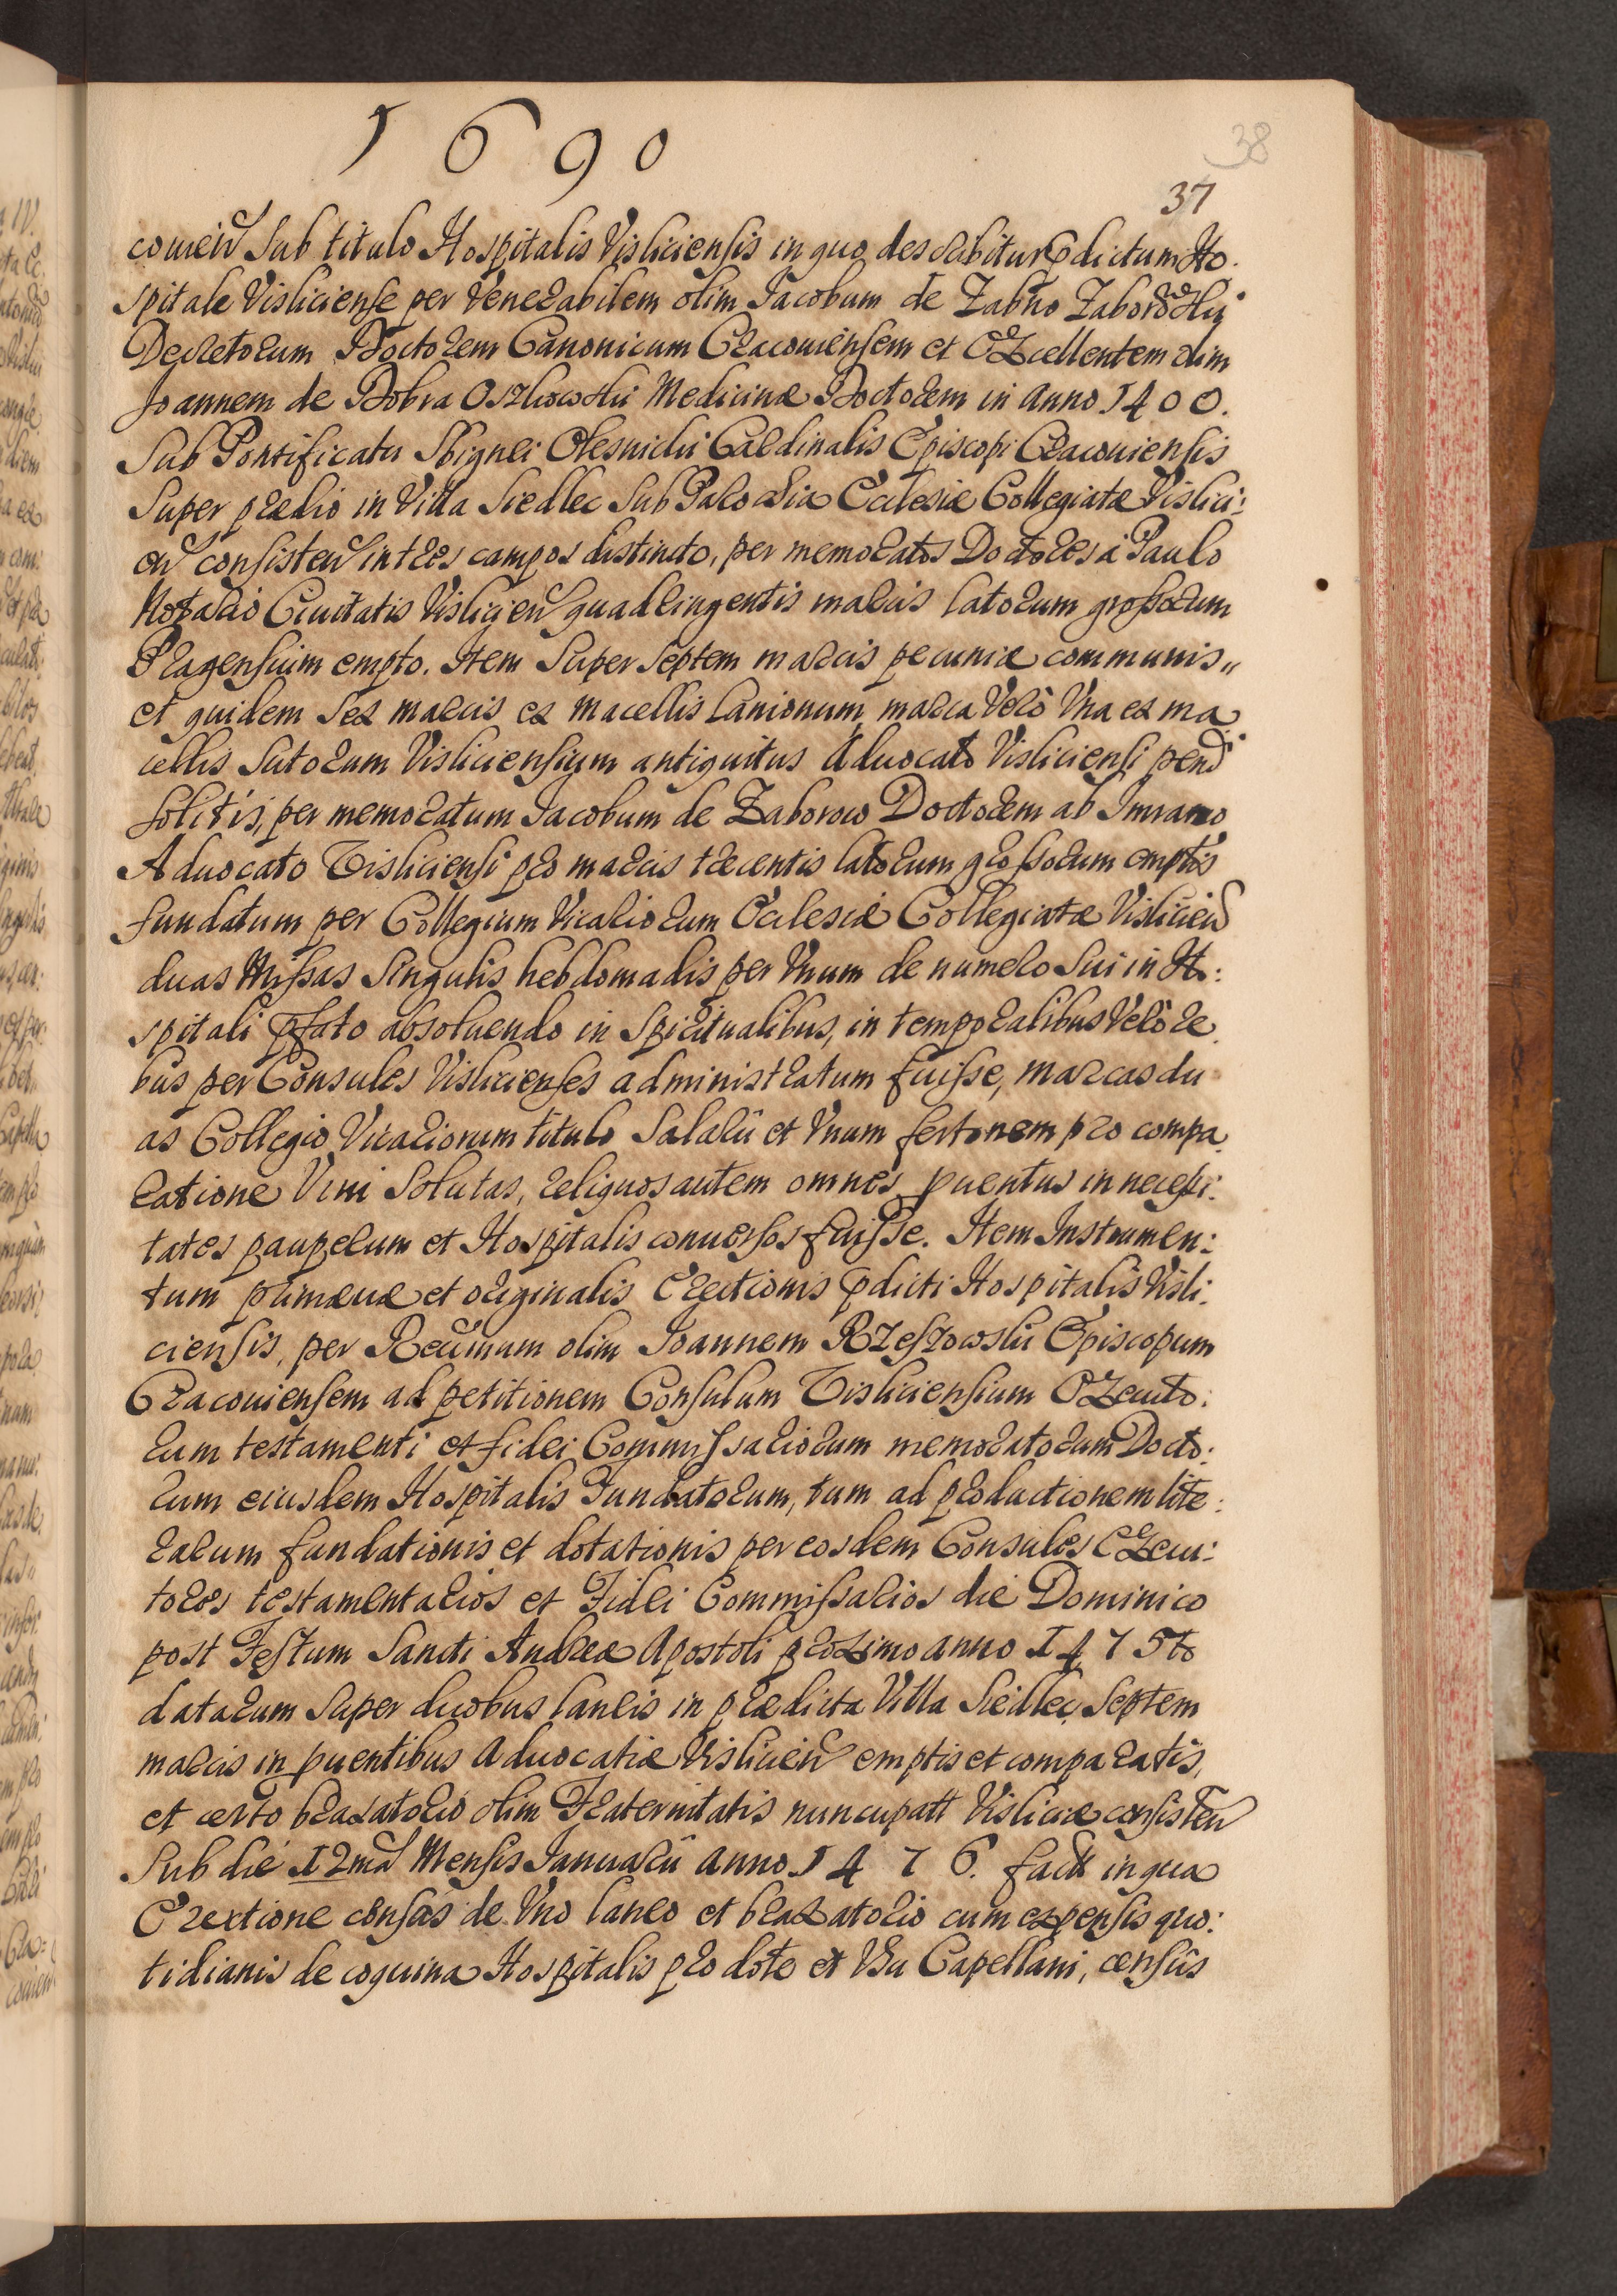 1690
38
37
couien Sub titulo Hospitalis Visliciensis in quo describitur pdictum Ho.
spitale Visliciense per Venerabilem olim Jacobum de Zabno Zaborowski
Decretorum Doctorem Canonicum Cracouiensem et Excellentem olim
Joannem de Dobra Oszkowski Medicinæ Doctorem in Anno 1400.
Sub Pontificatu Sbignei Olesnicki Cardinalis Episcopi Cracouiensis
Super prædio in Villa Siedlec Sub Parochia Ecclesiæ Collegiatæ Vislici:
en consisten in tres campos distincto, per memoratos Doctores à Paulo
Notario Ciuitatis Vislicien quadringentis marcis latorum grossorum
Pragensium empto. Item Super Septem marcis pecuniæ communis„
et quidem Sex marcis ex macellis Lanionum, marca Verò Vna ex ma
cellis Sutorum Visliciensium antiquitus Aduocato Visliciensi pendi
solitis, per memoratum Jacobum de Zaborow Doctorem ab Imramo
Aduocato Visliciensi pro marcis trecentis latorum grossorum emptis
fundatum per Collegium Vicariorum Ecclesiæ Collegiatæ Vislicien
duas Missas Singulis hebdomadis per Vnum de numero Sui in Ho:
spitali pfato absoluendo in Spiritualibus, in temporalibus Verò re
bus per Consules Vislicienses administratum fuisse, marcas du
as Collegio Vicariorum titulo Salarii et Vnum fertonem pro compa
ratione Vini Solutas, reliquos autem omnes puentus in necessi:
tates pauperum et Hospitalis conuersos fuisse. Item Instrumen:
tum primæuæ et originalis Erectionis pdicti Hospitalis Visli:
ciensis, per Reuerendissimum olim Joannem Rzeszowski Episcopum
Cracouiensem ad petitionem Consulum Visliciensium Executo:
rum testamenti et fidei Commissariorum memoratorum Docto:
rum eiusdem Hospitalis Fundatorum, tum ad productionem lite:
rarum fundationis et dotationis per eosdem Consules Execu:
tores testamentarios et Fidei Commissarios die Dominico
post Festum Sancti Andreæ Apostoli proximo anno 1475to
datarum Super duobus laneis in prædicta Villa Siedlec, Septem
marcis in puentibus Aduocatiæ Vislicien emptis et comparatis,
et certo braxatorio olim Fraternitatis nuncupatt Visliciæ consisten
Sub die 12ma Mensis Januarii Anno 1476. factt in qua
Erectione census de Vno laneo et braxatorio cum expensis quo:
tidianis de coquina Hospitalis pro dote et Vsu Capellani, census